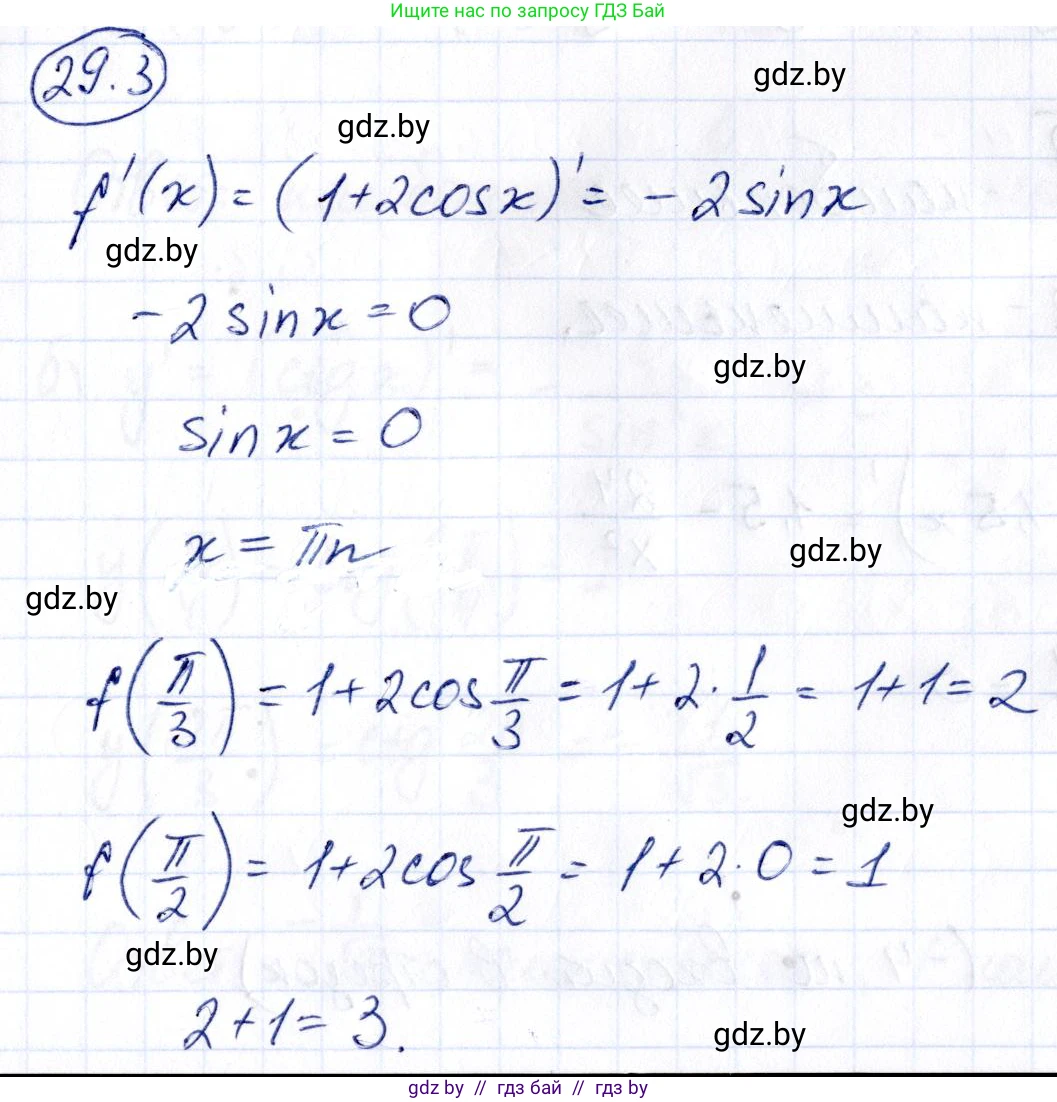 Ищите нас по запросу ГДЗ Бай
29.3
gdz.by
gdz.by
f'(x) = (1+2cosx)' = -2sinx
gdz.by
-2 sinx = 0
gdz.by
sinx = 0
x = πn
gdz.by
gdz.by
f(π/3) = 1+2cos π/3 = 1+2·1/2 = 1+1=2
gdz.by
f(π/2) = 1+2cos π/2 = 1+2·0 = 1
gdz.by
2+1= 3.
gdz.by
gdz by // гдз бай // гдз by